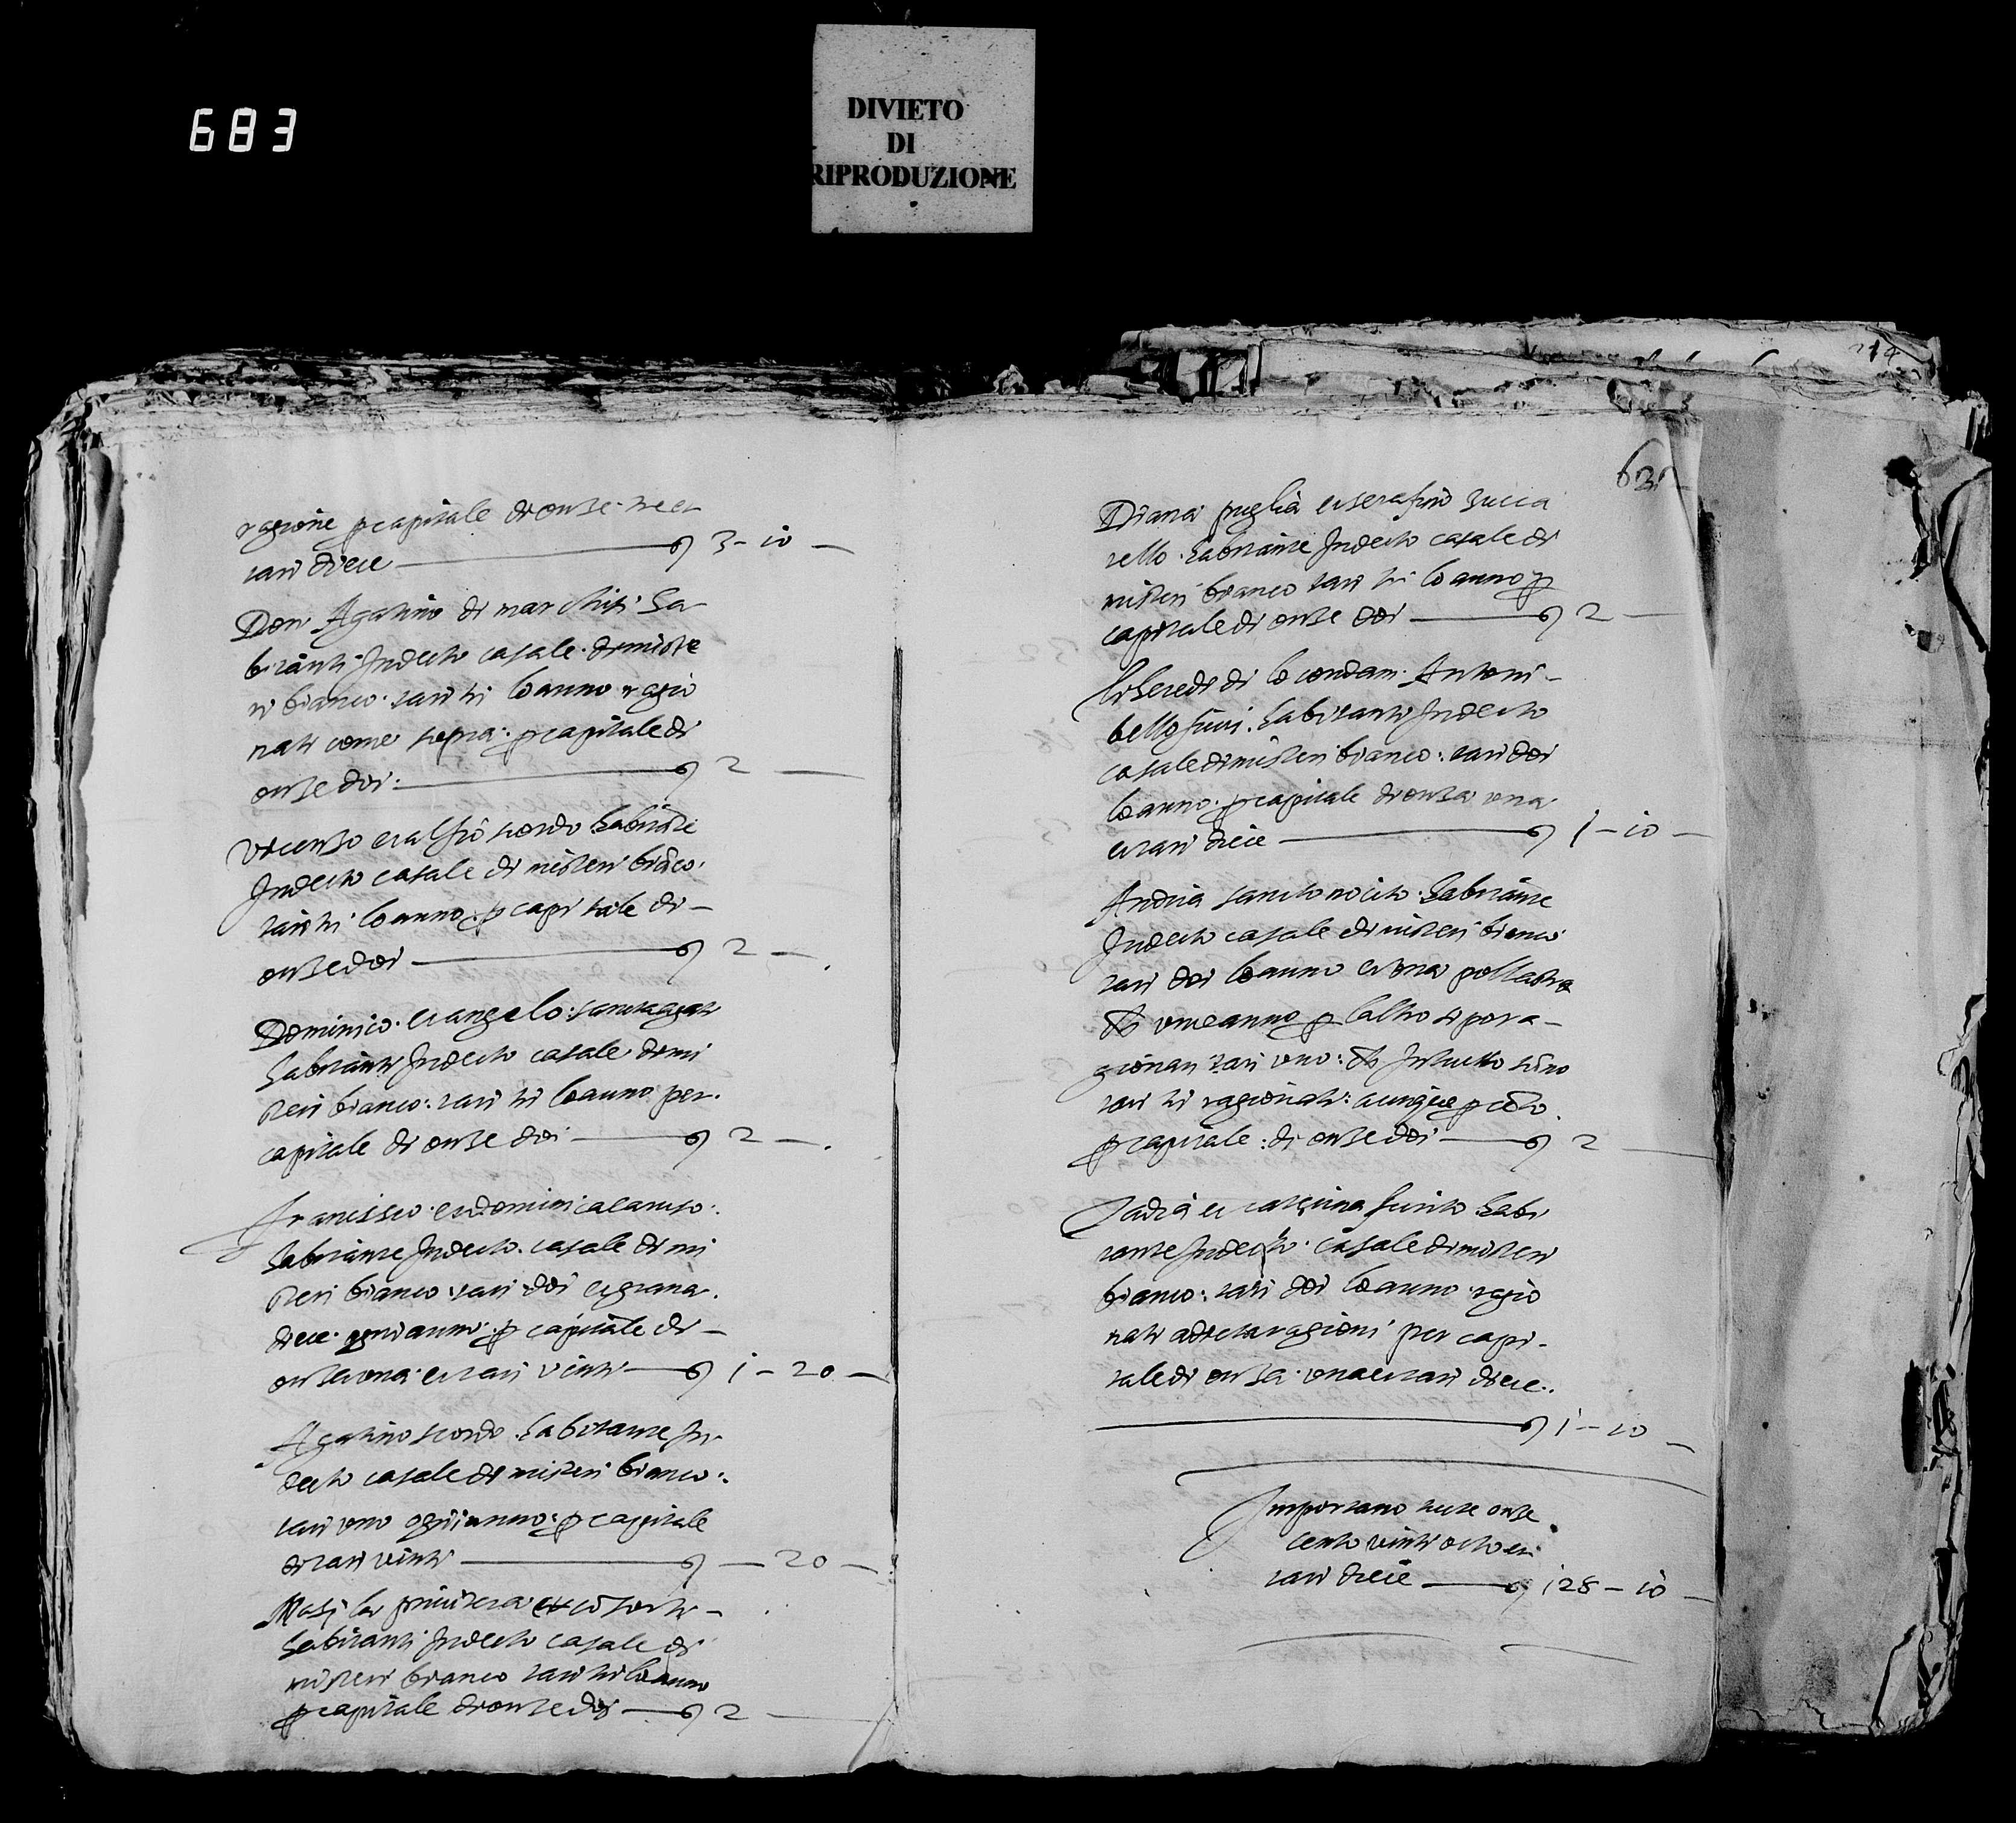 683
DIVIETO
DI
RIPRODUZIONE
214
ragione p capitale di onze tre et
tari diece 3 - 10 -
Don Agatino di marchisi ha
bitanti In decto casale di miste
ri bianco tari tri lo anno ragio
nati come sopra p capitale di
onze doi 2 -
Vicenso et alfio scordo habitāte
In decto casale di misteri biāco
tari tri lo anno p capitale di
onze doi 2 -
Dominico et angelo santagati
habitanti In decto casale di mi
steri bianco: tari tri lo anno per
capitale di onze doi 2 -
Francisco et dominica caruso
habitante In decto casale di mi
steri bianco tari doi et grana
diece ogni anno p capitale di
onza una et tari vinti 1 - 20 -
Agatino scordo habitante In
decto casale di misteri bianco:
tari uno ogni anno p capitale
di tari vinti - 20 -
Masi la et cōsorti
habitanti In decto casale di
misteri bianco tari tri lo anno
p capitale di onze doi 2
Diana puglia et serafino zucca
rello habitante In decto casale di
misteri bianco tari tri lo anno p
capitale di onze doi 2 -
li heredi di lo condam Antoni
bellofiuri habitanti In decto
casale di misteri bianco: tari doi
lo anno p capitale di onza una
et tari diece 1 - 10 -
Andria sancto nocito habitante
In decto casale di misteri bianco
tari doi lo anno et una pollastra
uno anno p laltro si po ra
gionari tari uno: In tutto sūno
tari tri ragionati: a cinque p cēto
p capitale: di onze doi 2
Jadia et catarina habi
tante In decto casale di misteri
bianco: tari doi lo anno ragio
nati a decta ragioni per capi
tale di onza una et tari diece
1 - 10 -
Importano tutte onze
cento vinti octo et
tari diece 128 - 10 -